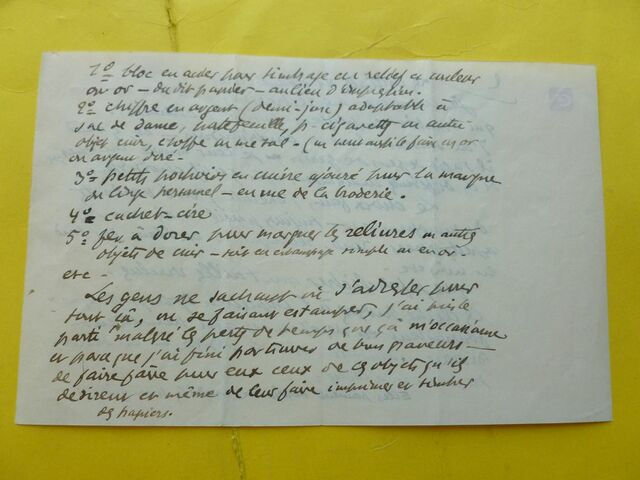 1º bloc en acier pour timbrage en relief en couleur
ou or - du dit papier - au lieu d'
2º chiffre en argent (demi-jonc) adaptable à
sac de dame, portefeuille, p-cigarette ou autre
objet cuir, étoffe ou métal - (
ou argent doré -
3º petits pochoirs en cuivre ajouré pour la marque
du linge personnel - en vue de la broderie.
4º cachet-cire
5º fer à dorer pour marquer les reliures ou autres
objets de cuir - soit en estampage simple ou en or.
etc -
Les gens ne sachant où s'adresser pour
tout çà, ou se faisant estamper, j'ai pris le
parti malgré la perte de temps que çà m'occasionne
et parce que j'ai fini par trouver de bons graveurs -
de faire faire pour eux ceux de ces objets qu'ils
désirent et même de leur faire imprimer et timbrer
des papiers.